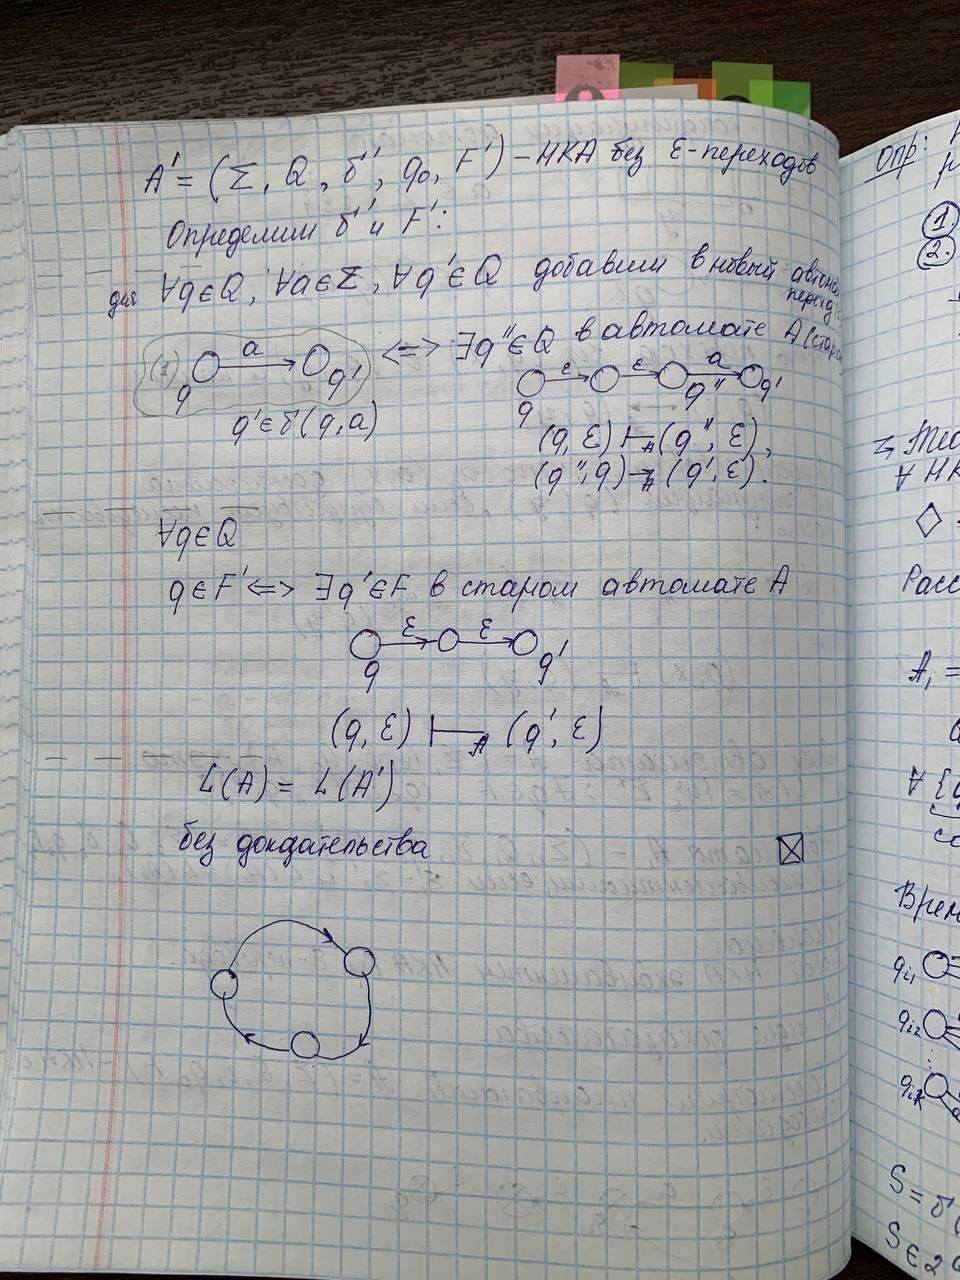 A' = (Σ, Q, δ', q₀, F') – НКА без ε-переходов
Определим δ' и F':
для ∀q∈Q, ∀a∈Σ, ∀q'∈Q добавим в новый
переход
(1) q a q' <=> ∃q''∈Q в автомате A
q ε ε q'' a q'
q'∈δ(q, a)
(q, ε) ⊢A (q'', ε),
(q'', q) → A (q', ε).
∀q∈Q
q∈F' <=> ∃q'∈F в старом автомате A
q ε ε q'
(q, ε) ⊢A (q', ε)
L(A) = L(A')
без докдательства
Опр:
1.
2.
∀ НК
Расс
A₁ =
∀ {q
со
Врем
qᵢ₁
qᵢ₂
qᵢₖ
S = δ'(
S∈2